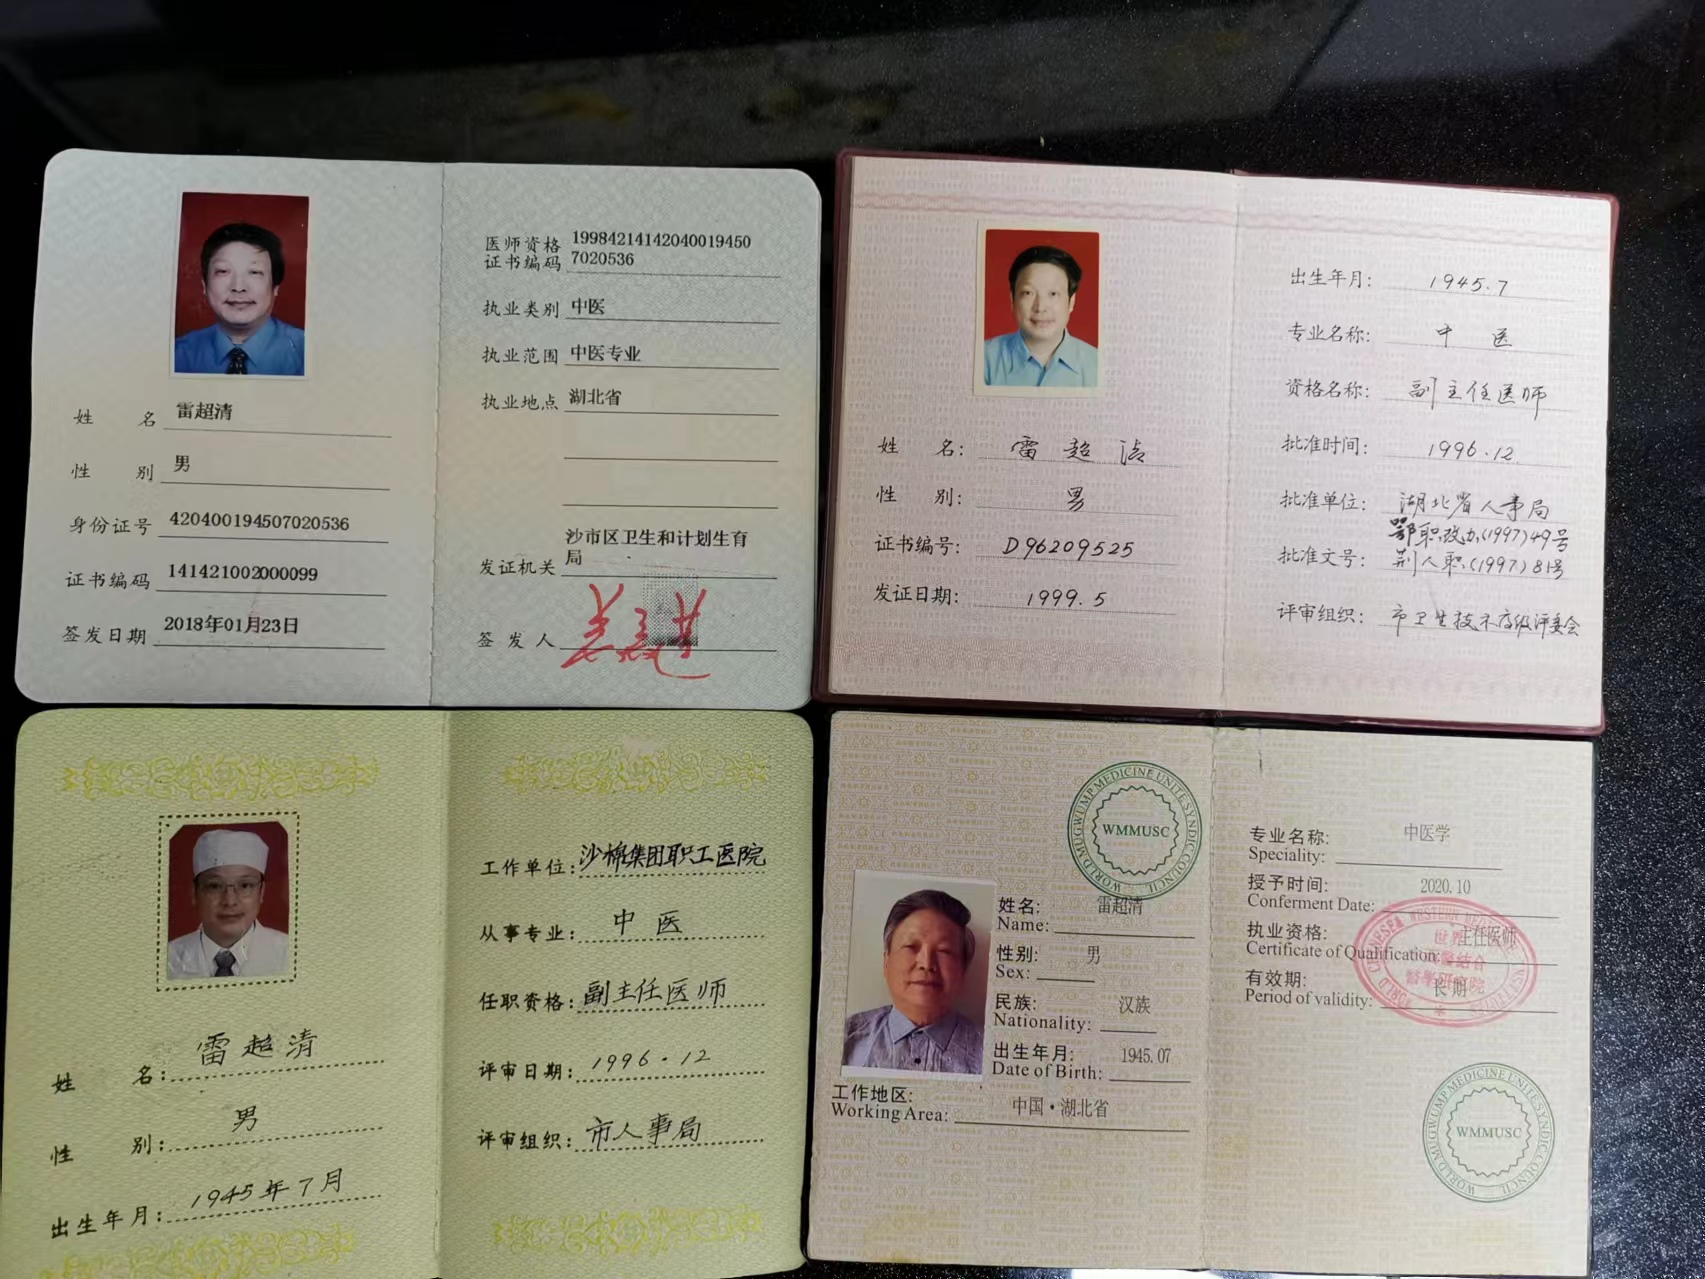 姓 名 雷超清
性 别 男
身份证号 420400194507020536
证书编码 141421002000099
签发日期 2018年01月23日
医师资格 19984214142040019450
证书编码 7020536
执业类别 中医
执业范围 中医专业
执业地点 湖北省
沙市区卫生和计划生育
发证机关 局
签发人
姓 名: 雷超清
性 别: 男
证书编号: D96209525
发证日期: 1999.5
出生年月: 1945.7
专业名称: 中医
资格名称: 副主任医师
批准时间: 1996.12
批准单位: 湖北省人事局
鄂职改办(1997)49号
批准文号: 荆人职(1997)81号
评审组织: 市卫生技术高级评委会
姓 名: 雷超清
性 别: 男
出生年月: 1945年7月
工作单位: 沙棉集团职工医院
从事专业: 中医
任职资格: 副主任医师
评审日期: 1996.12
评审组织: 市人事局
WORLD MUGWUMP MEDICINE UNITE SYNDIC COUNCIL
WMMUSC
姓名: 雷超清
Name:
性别: 男
Sex:
民族: 汉族
Nationality:
出生年月: 1945.07
Date of Birth:
工作地区: 中国·湖北省
Working Area:
专业名称: 中医学
Speciality:
授予时间: 2020.10
Conferment Date:
执业资格: 主任医师
Certificate of Qualification:
有效期: 长期
Period of validity:
WORLD MUGWUMP MEDICINE UNITE SYNDIC COUNCIL
WMMUSC